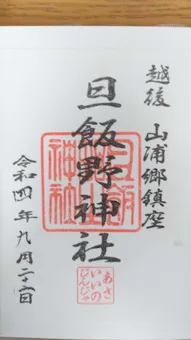 越後 山浦郷鎮座
旦飯野神社
旦飯
野
神社
あさ
いいの
じんじゃ
令和四年九月二十二日